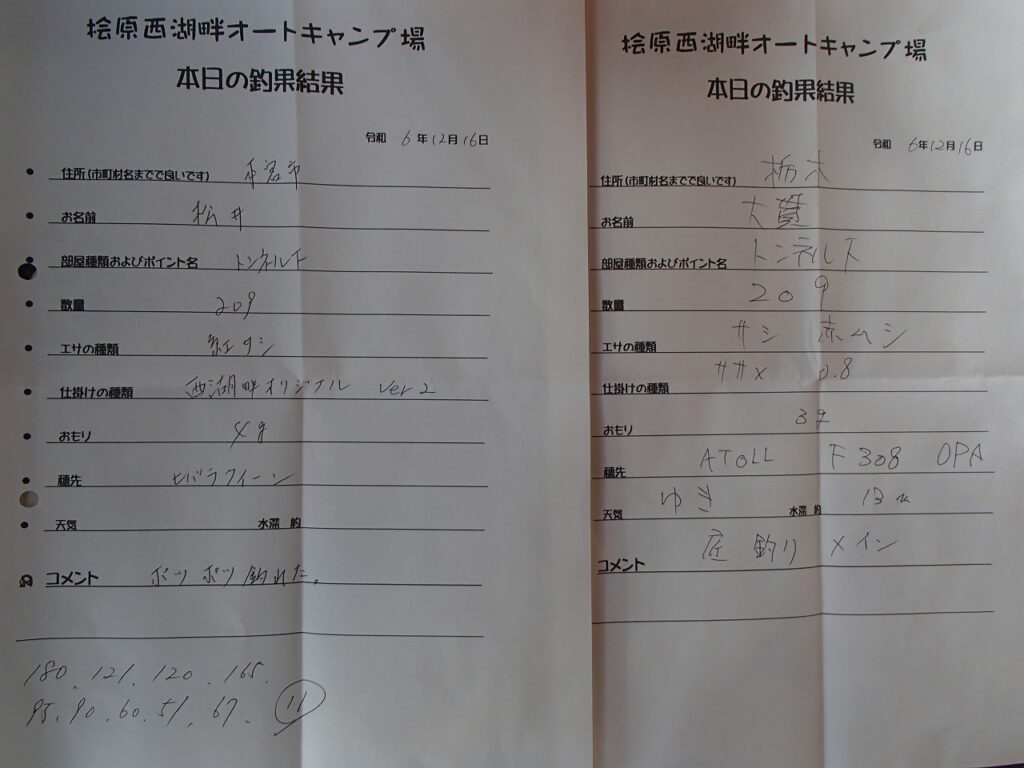 桧原西湖畔オートキャンプ場
本日の釣果結果
令和 6年12月16日
住所(市町村名までで良いです)
お名前 松井
部屋種類およびポイント名 トンネル下
数量 209
エサの種類 紅サシ
仕掛けの種類 西湖畔オリジナル ver2
おもり 4g
穂先 ヒバラクイーン
天気 水深 約
コメント ポツポツ釣れた。
180. 121. 120. 165.
95. 90. 60. 51. 67. 11
桧原西湖畔オートキャンプ場
本日の釣果結果
令和 6年12月16日
住所(市町村名までで良いです) 栃木
お名前 大貫
部屋種類およびポイント名 トンネル下
数量 209
エサの種類 サシ 赤ムシ
仕掛けの種類 0.8
おもり 3g
穂先 ATOLL F308 OPA
天気 ゆき 水深 約 13m
コメント 底釣りメイン